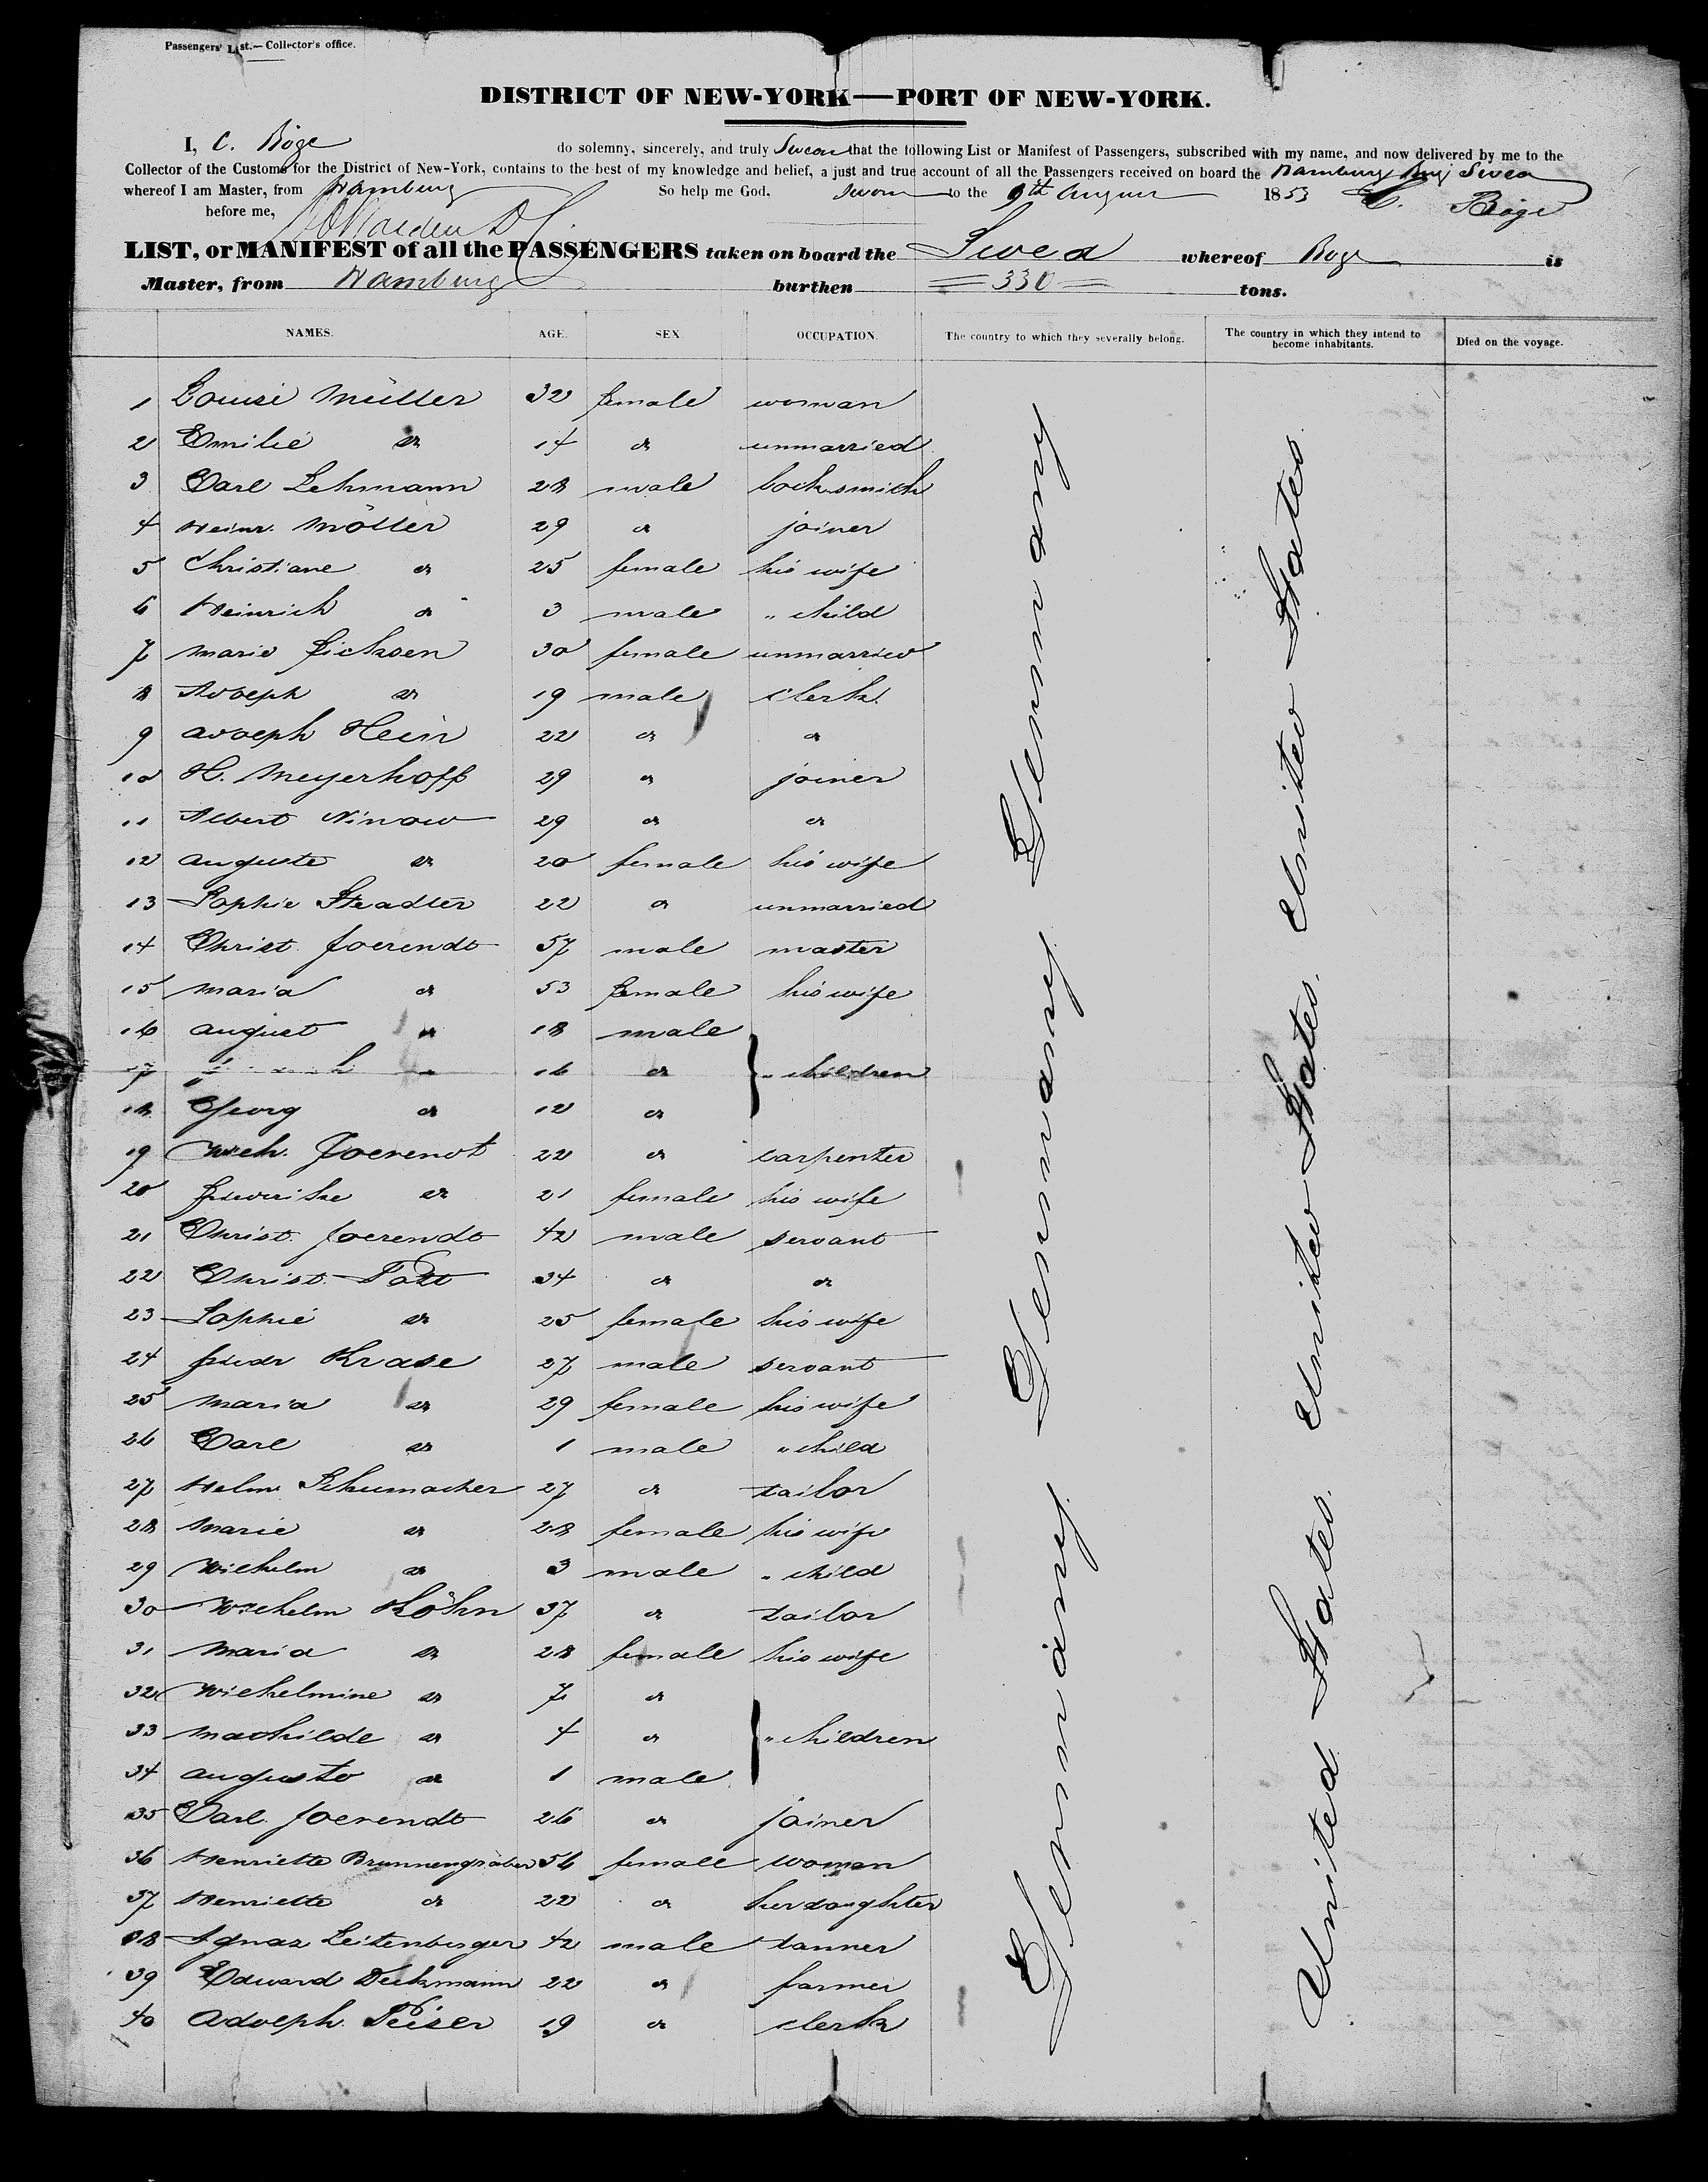 Passengers' List.—Collector's office.
DISTRICT OF NEW-YORK—PORT OF NEW-YORK.
I, C. Böge do solemny, sincerely, and truly Swear that the following List or Manifest of Passengers, subscribed with my name, and now delivered by me to the
Collector of the Customs for the District of New-York, contains to the best of my knowledge and belief, a just and true account of all the Passengers received on board the Hamburg Brig Swea
whereof I am Master, from Hamburg So help me God, Sworn to the 9th August 1853 C. Böge
before me,
LIST, or MANIFEST of all the PASSENGERS taken on board the Swea whereof Boge is
Master, from Hamburg burthen 330 tons.
NAMES. AGE. SEX. OCCUPATION. The country to which they severally belong. The country in which they intend to become inhabitants. Died on the voyage.
1 Louise Müller 32 female woman
2 Emilie do 14 do unmarried
3 Carl Lehmann 28 male locksmith
4 Heinr. Möller 29 do joiner
5 Christiane do 25 female his wife
6 Heinrich do 3 male " child
7 Marie Ficksen 30 female unmarried
8 Adolph do 19 male clerk.
9 Adolph Hein 22 do do
10 H. Meyerhoff 29 do joiner
11 Albert Ninow 29 do do
12 Auguste do 20 female his wife
13 Sophie Steadler 22 do unmarried
14 Christ. Joerendt 57 male master
15 Maria do 53 female his wife
16 August do 18 male
17 do 16 do " children
18 Georg do 12 do
19 Wilh. Joerendt 22 do carpenter
20 Friederike do 21 female his wife
21 Christ. Joerendt 42 male servant
22 Christ. 34 do do
23 Sophie do 25 female his wife
24 Friedr Krase 27 male servant
25 Maria do 29 female his wife
26 Carl do 1 male " child
27 Helm. Schumacher 27 do tailor
28 Marie do 28 female his wife
29 Wilhelm do 3 male " child
30 Wilhelm Köhn 37 do tailor
31 Maria do 28 female his wife
32 Wilhelmine do 7 do
33 Mathilde do 4 do " children
34 Auguste do 1 male
35 Carl Joerendt 26 do joiner
36 Henriette Brunnengräber 56 female woman
37 Henriette do 22 do her daughter
38 Ignaz Leitenberger 42 male tanner
39 Edward Deckmann 22 do farmer
40 Adolph Peiser 19 do clerk
Germany Germany Germany Germany
United States. United States. United States United States